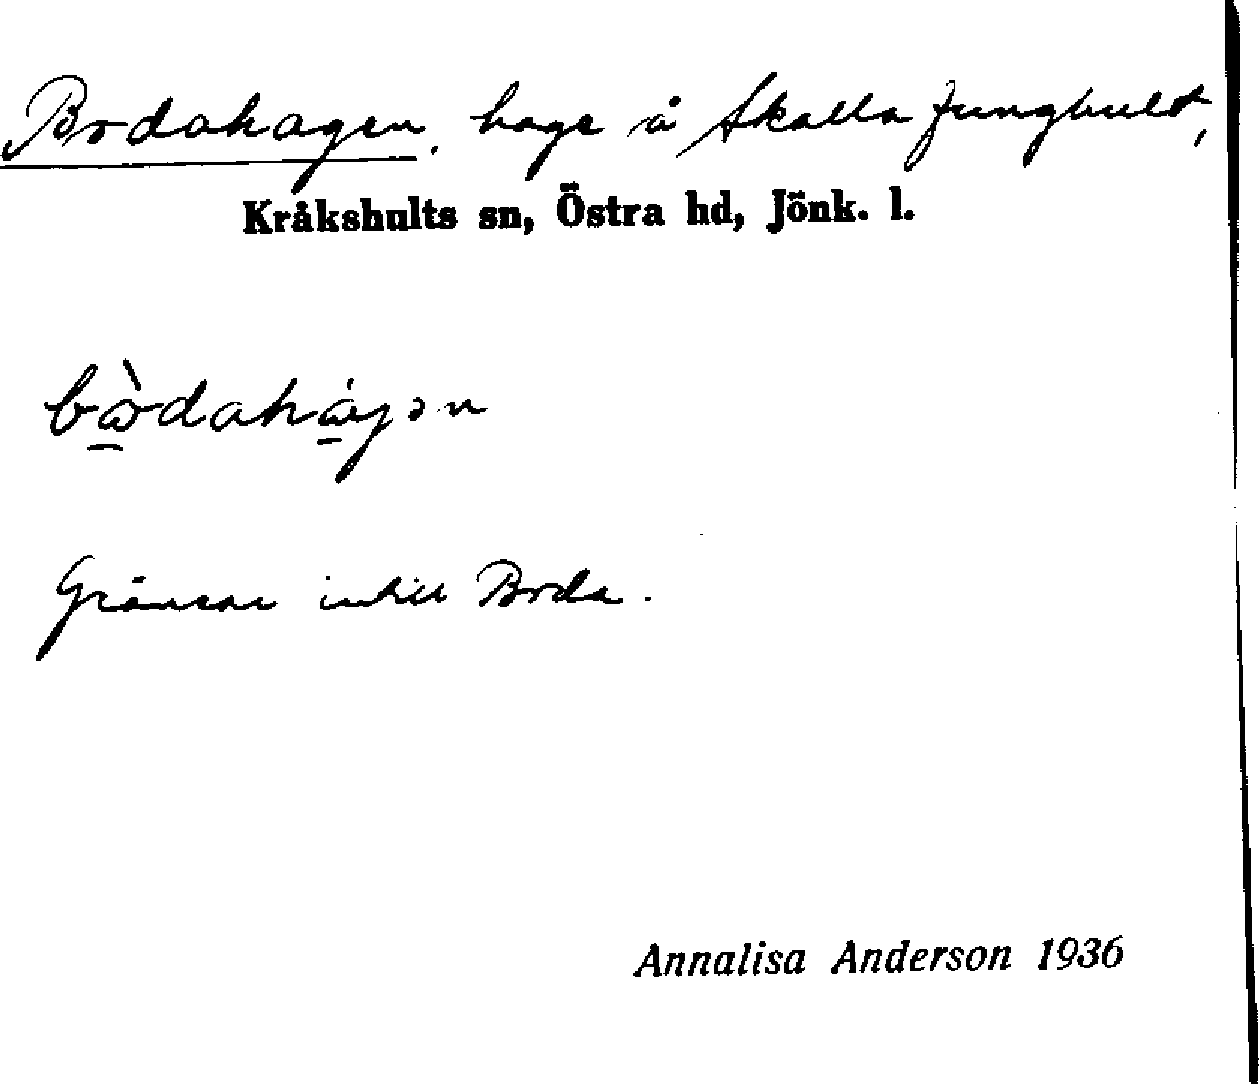 Bodahagen, hage å Skalla Ljunghult,
Kråkshults sn, Östra hd, Jönk. l.
Gränsar intill Boda.
Annalisa Anderson 1936